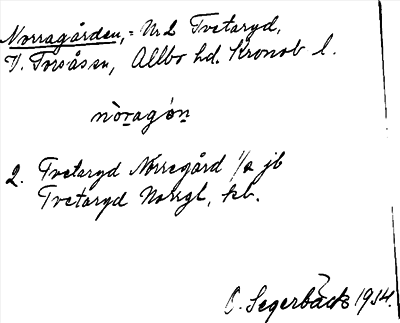 Norragården, = Nr 2 Tvetaryd,
V. Torsåsen, Allbo hd. Kronob l.
nòragǻn
2. Tvetaryd Norregård 1/2 jb
Tvetaryd Norrgl, kb.
O. Segerbäck 1934.